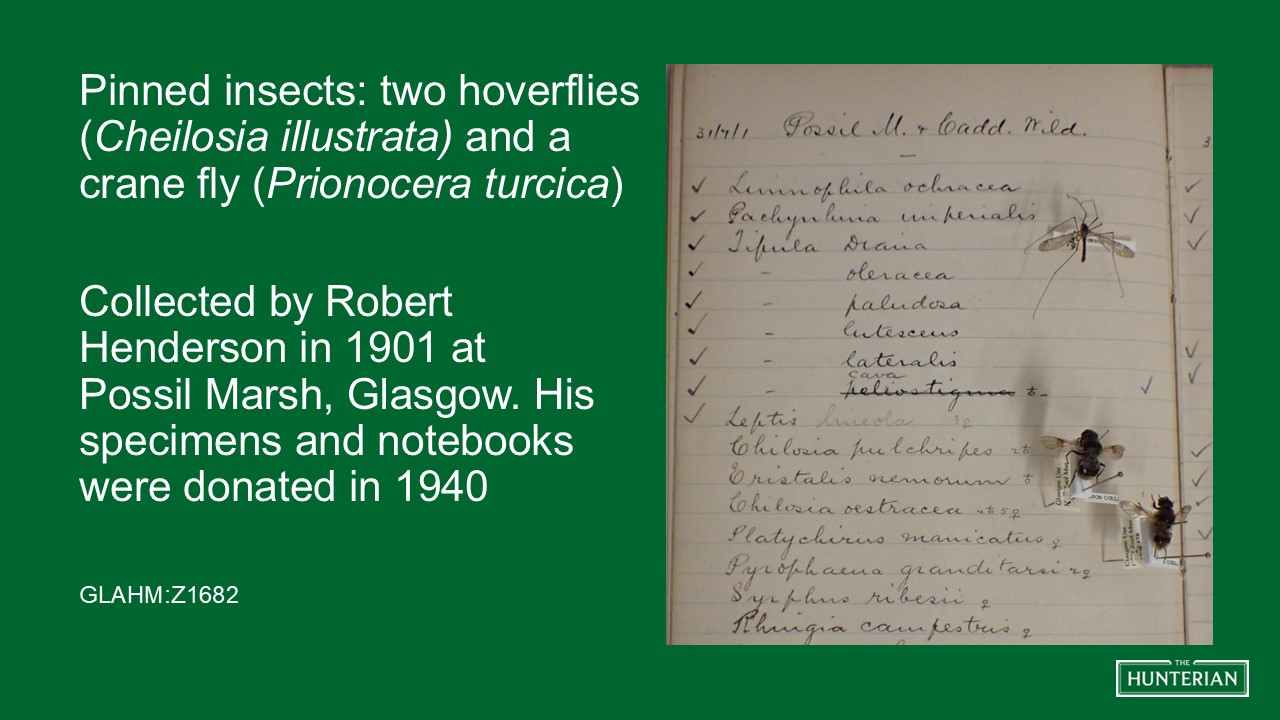 Pinned insects: two hoverflies
(Cheilosia illustrata) and a
crane fly (Prionocera turcica)
Collected by Robert
Henderson in 1901 at
Possil Marsh, Glasgow. His
specimens and notebooks
were donated in 1940
GLAHM:Z1682
31/7/1 Possil M. & Cadd. Wild.
Limnophila ochracea
Pachyrhina imperialis
Tipula Diana
- oleracea
- paludosa
- lutescens
- lateralis
cava
- peliostigma
Leptis lineola
Chilosia pulchripes
Eristalis nemorum
Chilosia oestracea
Platychirus manicatus ♀
Pyrophaena granditarsi
Syrphus ribesii ♀
Rhingia campestris ♀
THE
HUNTERIAN